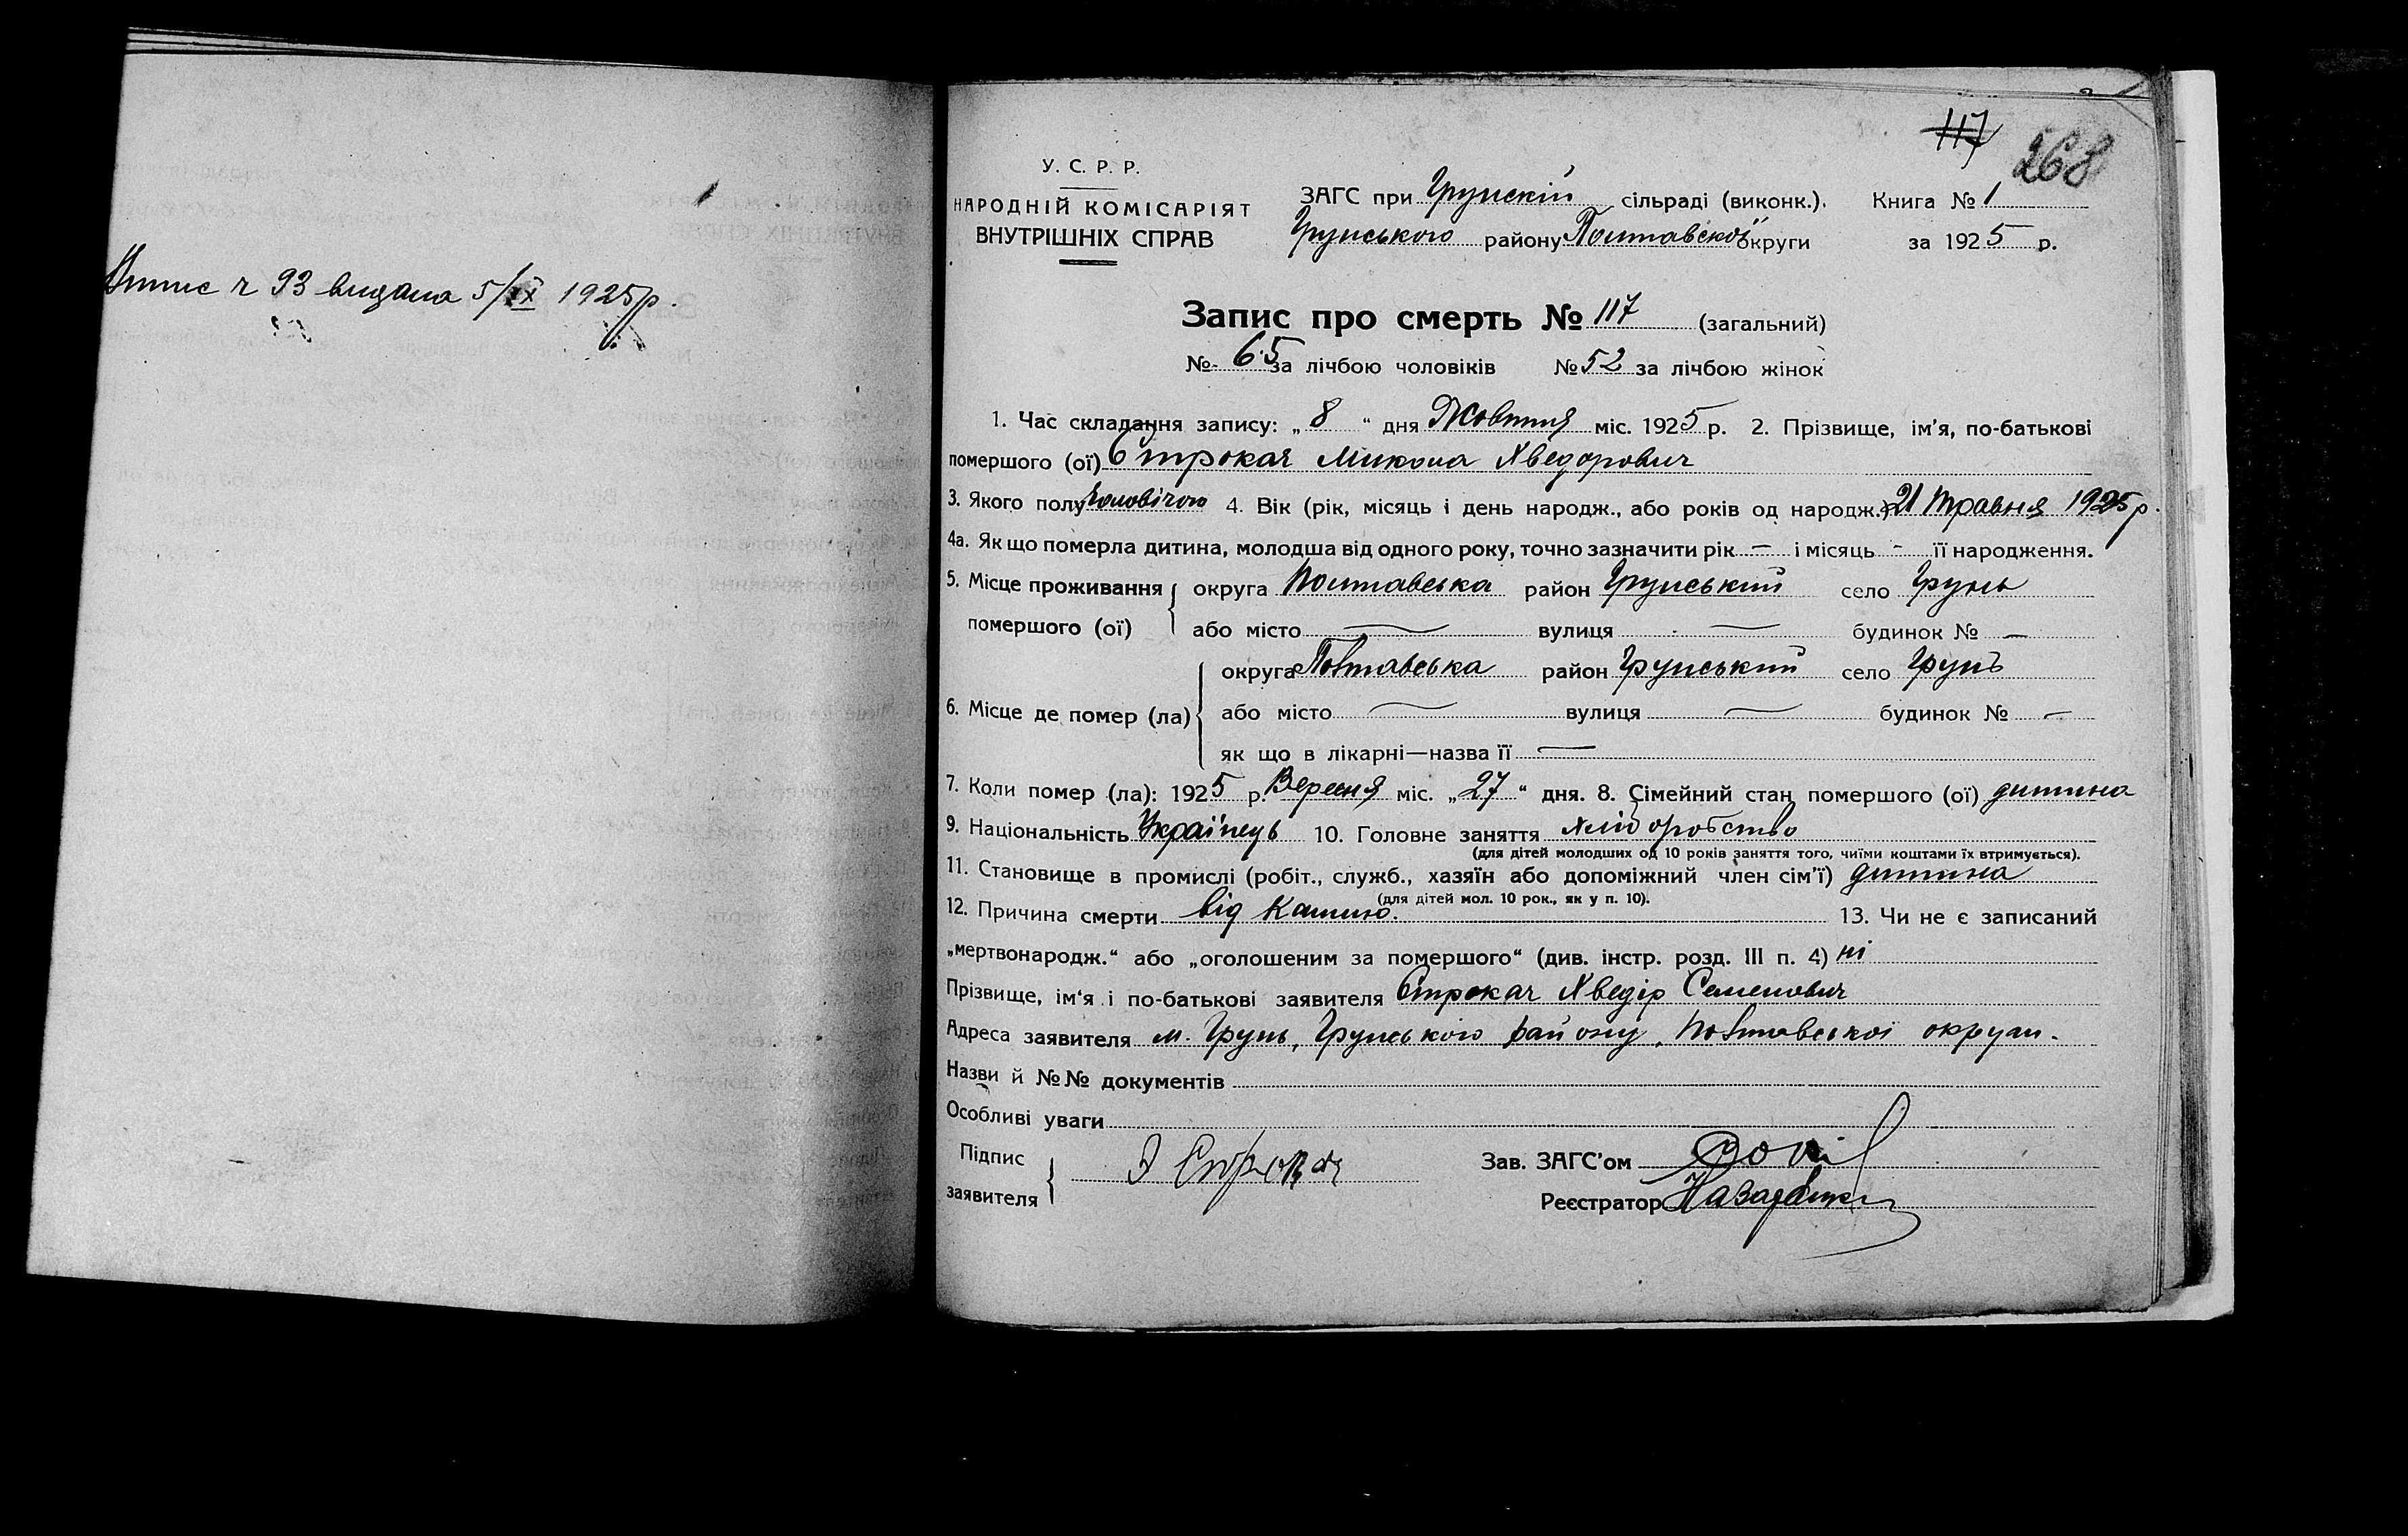 Витис ч 93 видана 5/IX 1925р.
117
268
У. С. Р. Р.
НАРОДНІЙ КОМІСАРІЯТ
ВНУТРІШНІХ СПРАВ
ЗАГС при Грунскій сільраді (виконк.). Книга № 1
Грунського району Полтавської округи за 1925 р.
Запис про смерть № 117 (загальний)
№ 65 за лічбою чоловіків № 52 за лічбою жінок
1. Час складання запису: „ 8 “ дня Жовтня міс. 1925 р. 2. Прізвище, ім'я, по-батькові
помершого (ої) Строкач Микола Хведорович
3. Якого полу Чоловічого 4. Вік (рік, місяць і день народж., або років од народж.) 21 Травня 1925 р.
4а. Як що померла дитина, молодша від одного року, точно зазначити рік — і місяць - її народження.
5. Місце проживання округа Полтавська район Грунський село Грунь
помершого (ої) або місто — вулиця — будинок № —
округа Полтавська район Грунський село Грунь
6. Місце де помер (ла) або місто — вулиця — будинок № —
як що в лікарні—назва її —
7. Коли помер (ла): 1925 р. Вересня міс. „27“ дня. 8. Сімейний стан помершого (ої) дитина
9. Національність Україńець 10. Головне заняття хліборобство
(для дітей молодших од 10 років заняття того, чиїми коштами їх втримується).
11. Становище в промислі (робіт., служб., хазяїн або допоміжний член сім'ї) дитина
(для дітей мол. 10 рок., як у п. 10).
12. Причина смерти від Кашлю. 13. Чи не є записаний
„мертвонародж.“ або „оголошеним за помершого“ (див. інстр. розд. III п. 4) ні
Прізвище, ім'я і по-батькові заявителя Строкач Хведір Семенович
Адреса заявителя м. Грунь, Грунського району, Полтавської округи.
Назви й №№ документів
Особливі уваги
Підпис
заявителя Строкач
Зав. ЗАГС'ом
Реєстратор